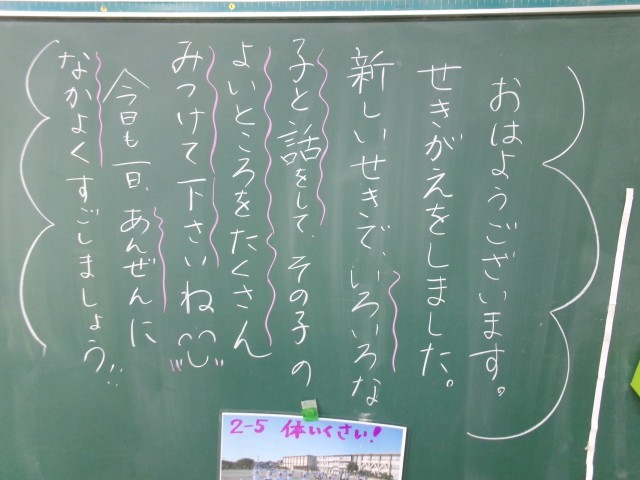 おはようございます。
せきがえをしました。
新しいせきで、いろいろな
子と話をして、その子の
よいところをたくさん
みつけて下さいね
今日も一日、あんぜんに
なかよくすごしましょう!!
2-5 体いくさい!